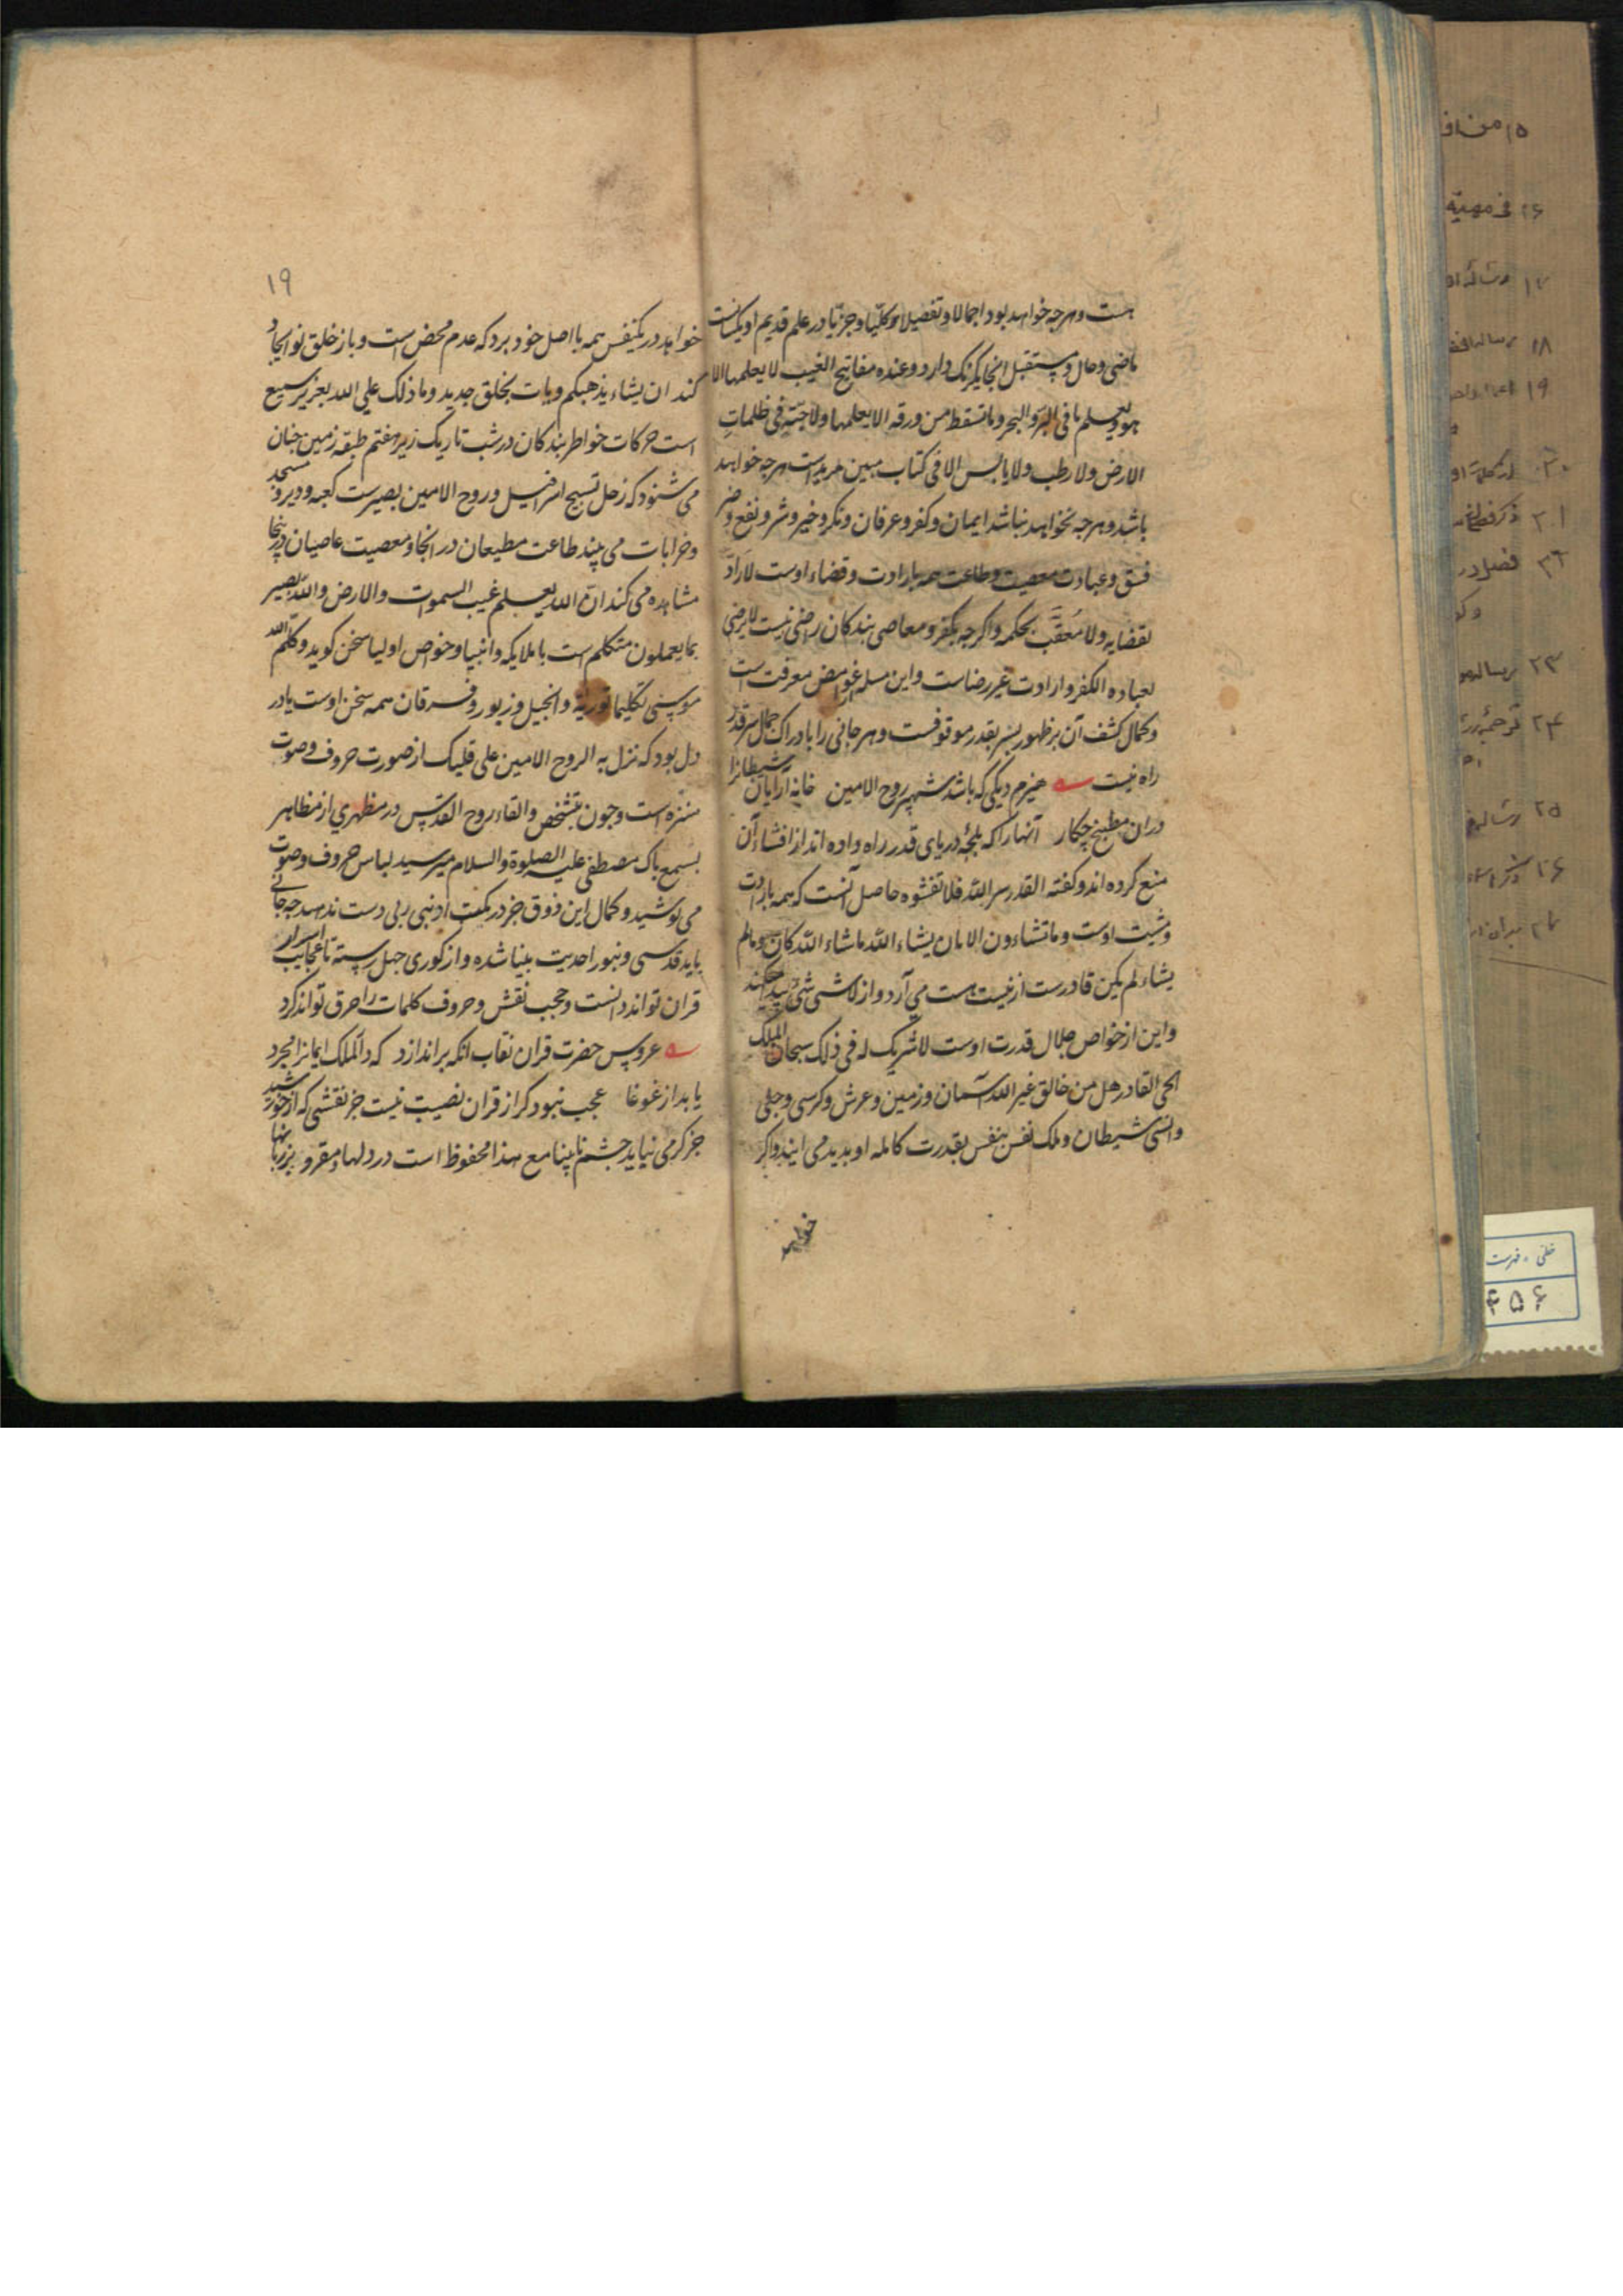 هست و هرچه خواهد بود اجمالا و تفصیلا و کلیّا و جزیّا در علم قدیم او یکسانست
ماضی و حال و مستقبل انجا یکرنک دارد و عنده مفاتیح الغیب لا یعلمها الا
هو و یعلم ما فی البرّ و البحر و ما تسقط من ورقه الا یعلمها و لا حبّة فی ظلماتِ
الارض و لا رطب و لا یابس الا فی کتاب مبین مریدست هرچه خواهد
باشد و هرچه نخواهد نباشد ایمان و کفر و عرفان و نکر و خیر و شر و نفع و ضر
فسق و عبادت معصیت و طاعت همه بارادت و قضاء اوست لا رادّ
لقضایه و لا مُعقّب لحکمه و اکرچه بکفر و معاصی بندکان راضی نیست لا یرضی
لعباده الکفر و ارادت غیر رضاست و این مسله از غوامض معرفت است
و کمال کشف آن بر ظهور سِرّ قدر موقوفست و هر جافی را بادراک جمال سرّ قدر
راه نیست هیزم دیکی که باشد شهپر روح الامین خانه آرایان شیطانرا
دران مطبخ چکار آنها را که بلجّهٔ دریای قدر راه داده اند از افشاء آن
منع کرده اند و کفته القدر سر الله فلا تفشوه حاصل آنست که همه بارادت
و مشیت اوست و ما تشاءون الا ان یشاء الله ما شاء الله کان و ما لم
یشاء لم یکن قادرست از نیست هست می آرد و از لا شی شیٔ پیدا میکند
و این از خواص جلال قدرت اوست لا شریک له فی ذلک سبحان الملک
الحی القادر هل من خالق غیر الله آسمان و زمین و عرش و کرسی و جنی
و انسی شیطان و ملک نفس بنفس بقدرت کامله او بدید می ایند و اکر
خواهد
۱۹
خواهد در یکنفس همه با اصل خود برد که عدم محض است و باز خلق نو ایجاد
کند ان یشاء یذهبکم و یات بخلق جدید و ما ذلک علی الله بعزیز سمیع
است حرکات خواطر بندکان در شب تاریک زیر هفتم طبقه زمین جنان
می شنود که زجل تسبیح اسرافیل و روح الامین بصیرست کعبه و دیر و مسجد
و خرابات می بیند طاعت مطیعان در انجا و معصیت عاصیان در ینجا
مشاهده می کند انّ الله یعلم غیب السموات و الارض و الله بصیر
بما یعملون متکلم است با ملایکه و انبیا و خواص اولیا سخن کوید و کلّم الله
موسی تکلیما توریة و انجیل و زبور و فرقان همه سخن اوست یا در
دل بود که نزل به الروح الامین علی قلبک از صورت حروف و صوت
منزّه است و جون بتشخص و القاء روح القدس در مظهری از مظاهر
بسمع پاک مصطفی علیه الصلوة و السلام میرسید لباس حروف و صوت
می پوشید و کمال این ذوق جز در مکتب ادبنی ربی دست ندهد جه جانی
باید قدسی و بنور احدیت بینا شده و از کوری جهل رسته تا عجایب اسرار
قران تواند دانست و حجب نقش و حروف کلمات را حرق تواند کرد
عروس حضرت قران نقاب انکه براندازد که دالملک ایمانرا مجرد
یابد از غوغا عجب نبود کر از قران نصیبت نیست جز نقشی که از خورشید
جز کرمی نیابد جشم نابینا مع هذا محفوظ است در دلها و مقرو بر زبانها
۱۵ من
۱۷
۱۸
۱۹
۲۳
۲۴
۲۵
۲۶
خطی - فهرست
۴۵۶